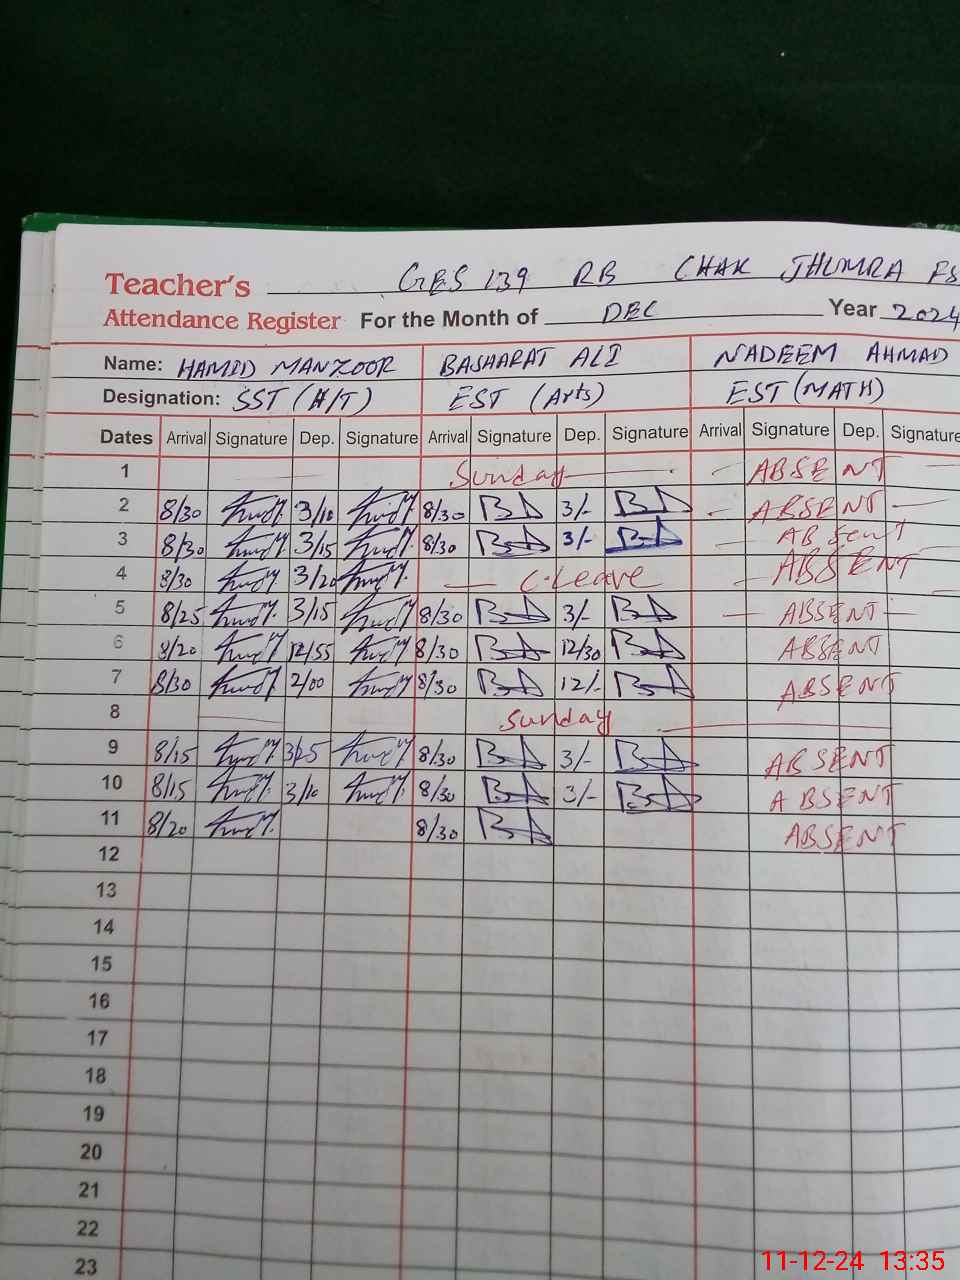 Teacher's GES 139 RB CHAK JHUMRA FS
Attendance Register For the Month of DEC Year 2024
Name: HAMID MANZOOR BASHARAT ALI NADEEM AHMAD
Designation: SST (H/T) EST (Arts) EST (MATH)
Dates Arrival Signature Dep. Signature Arrival Signature Dep. Signature Arrival Signature Dep. Signature
1 Sunday ABSENT
2 8/30 3/10 8/30 3/- ABSENT
3 8/30 3/15 8/30 3/- ABSent
4 8/30 3/20 C.Leave ABSENT
5 8/25 3/15 8/30 3/- ABSENT
6 8/20 12/55 8/30 12/30 ABSENT
7 8/30 2/00 8/30 12/- ABSENT
8 Sunday
9 8/15 8/30 3/- ABSENT
10 8/15 3/10 8/30 3/- ABSENT
11 8/20 8/30 ABSENT
12
13
14
15
16
17
18
19
20
21
22
23
11-12-24 13:35